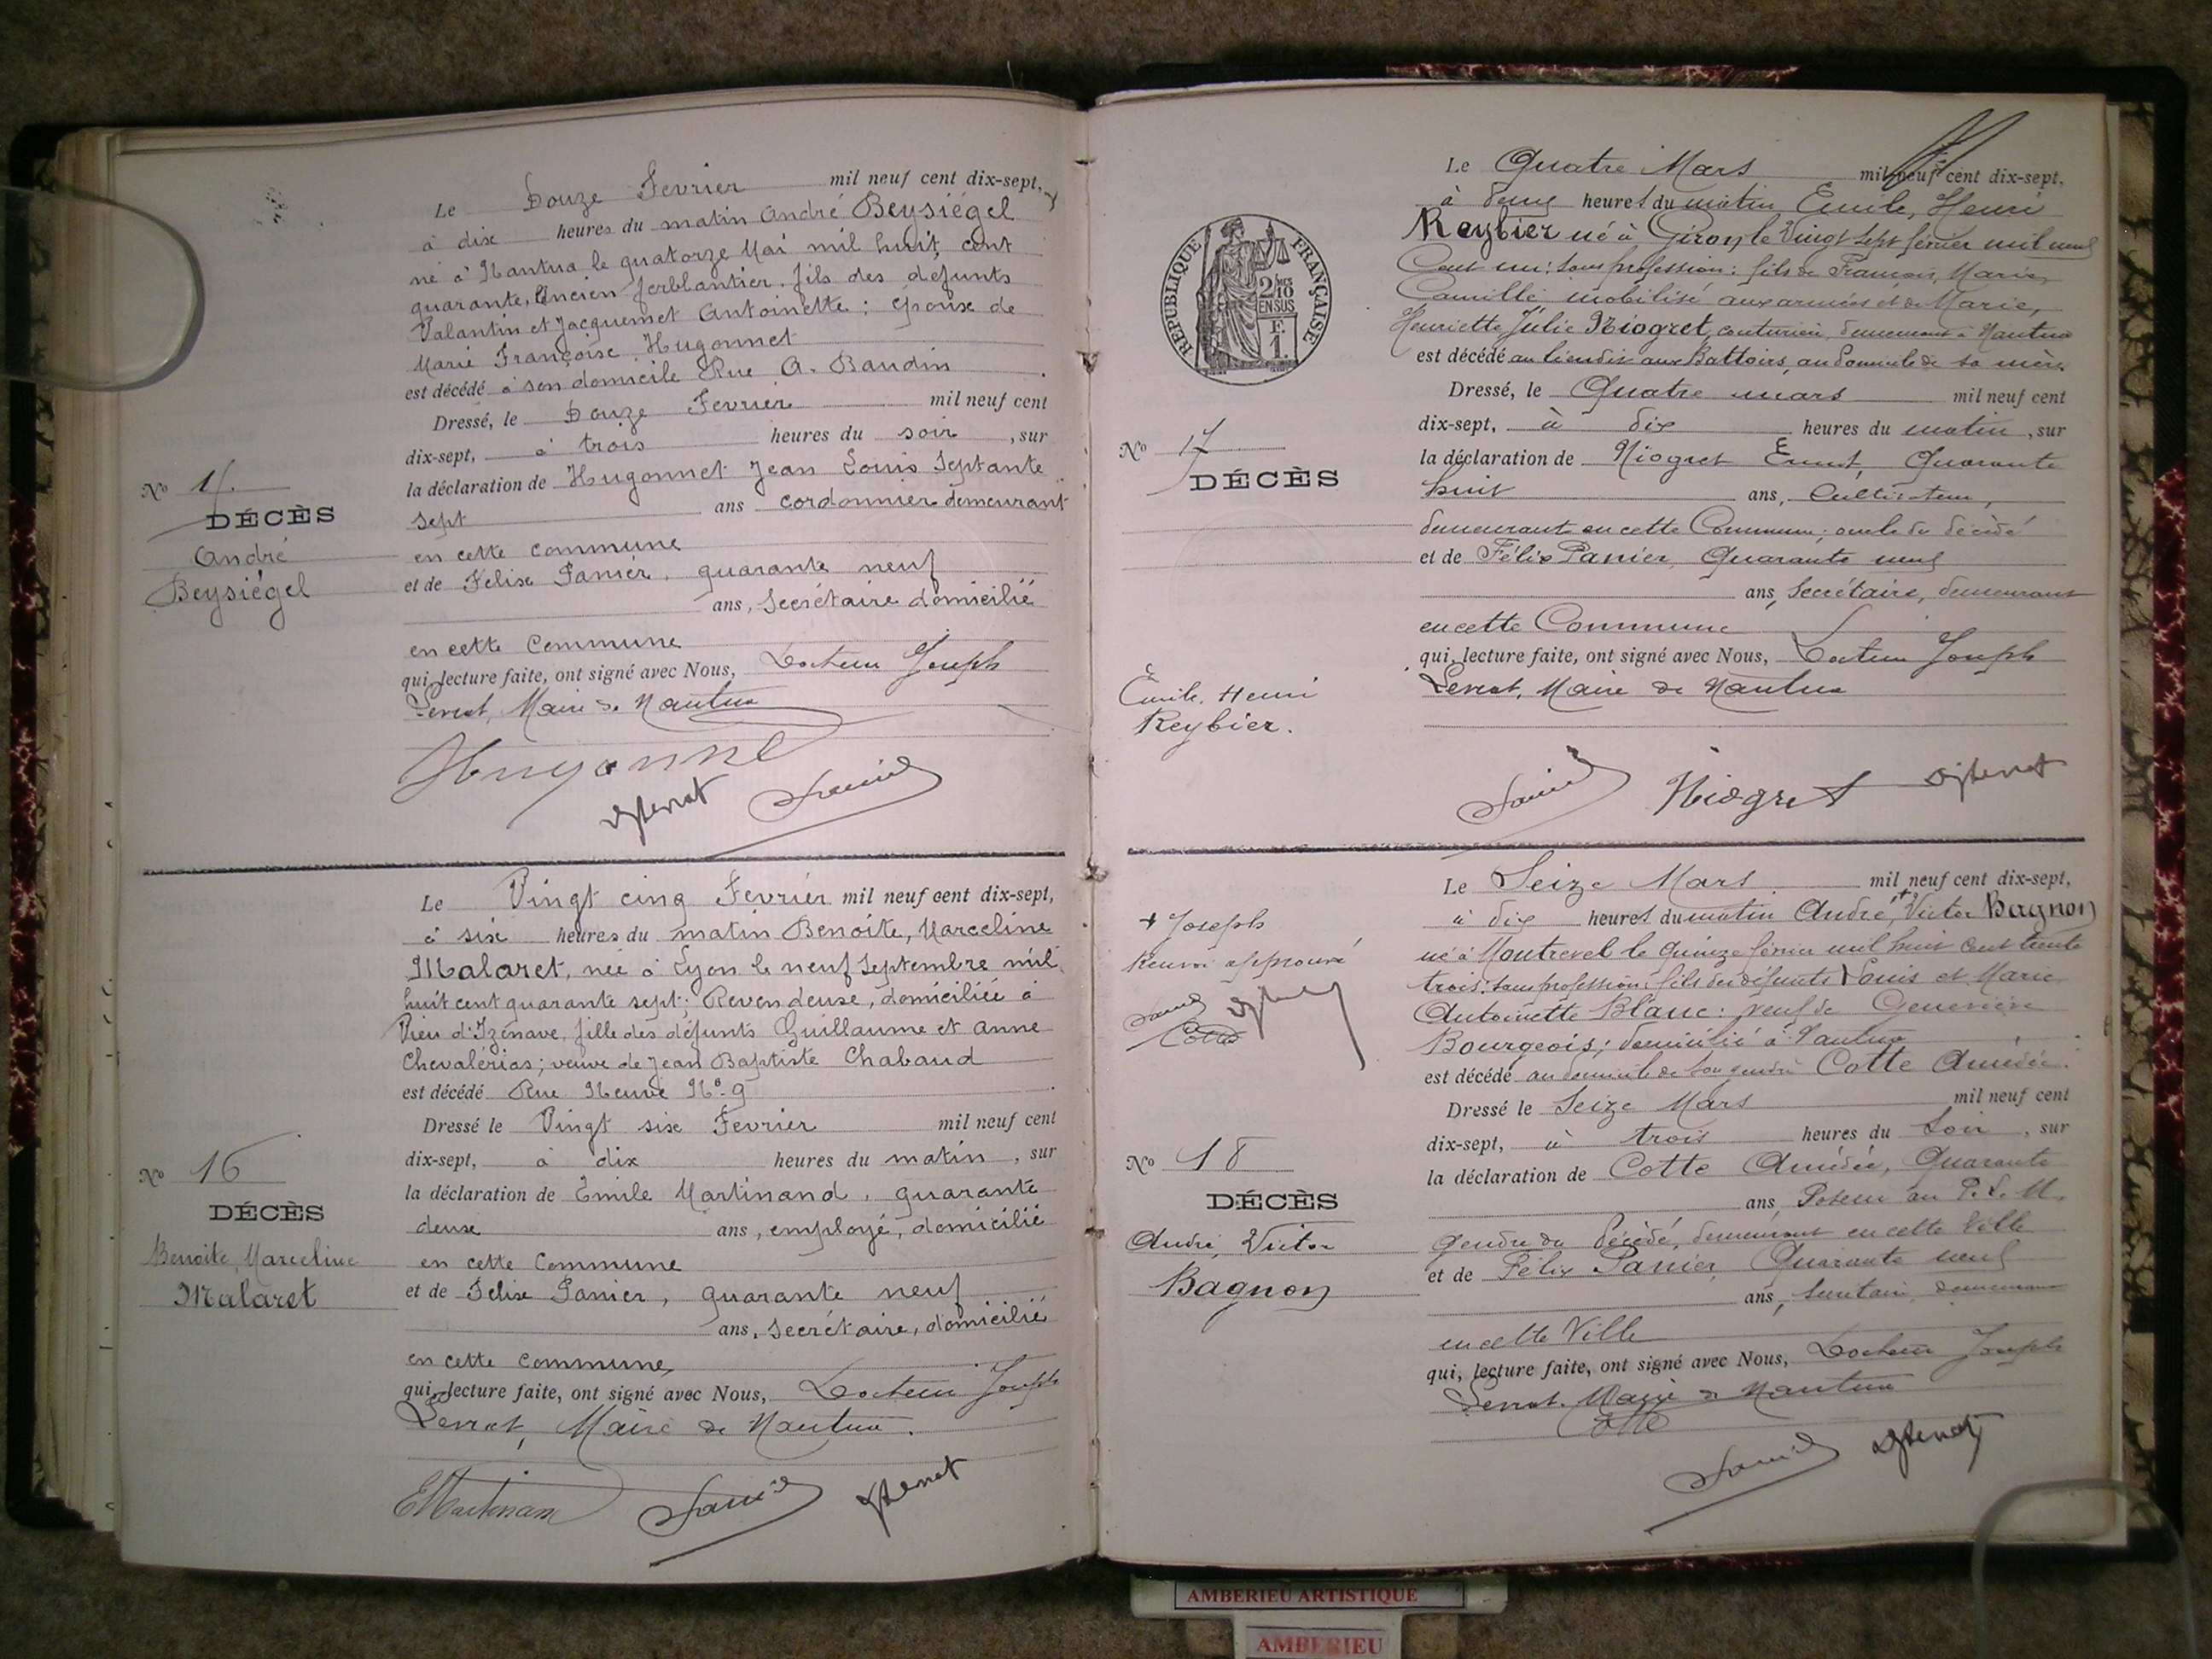 Le Douze Fevrier mil neuf cent dix-sept,
à dix heures du matin André Beysiégel
né à Nantua le quatorze Mai mil huit cent
quarante, Ancien ferblantier, fils des défunts
Valantin et Jacquemet Antoinette ; époux de
Marie Françoise Hugonnet
est décédé à son domicile Rue A. Baudin
Dressé, le Douze Fevrier mil neuf cent
dix-sept, à trois heures du soir, sur
la déclaration de Hugonnet Jean Louis Septante
sept ans cordonnier demeurant
en cette commune
et de Félix Panier, quarante neuf
ans, Secrétaire domicilié
en cette Commune
qui, lecture faite, ont signé avec Nous, Docteur Joseph
Levrat, Maire de Nantua
No
DÉCÈS
André
Beysiégel
Le Vingt cinq Fevrier mil neuf cent dix-sept,
à six heures du matin Benoite, Marceline
Malaret, née à Lyon le neuf Septembre mil
huit cent quarante sept ; Revendeuse, domiciliée à
Vieu d'Izenave, fille des défunts Guillaume et Anne
Chavalérias ; veuve de Jean Baptiste Chabaud
est décédé Rue Neuve No 9
Dressé le Vingt six Fevrier mil neuf cent
dix-sept, à dix heures du matin, sur
la déclaration de Emile Martinand, quarante
deux ans, employé, domicilié
en cette Commune
et de Félix Panier, quarante neuf
ans, Secrétaire, domicilié
en cette commune,
qui, lecture faite, ont signé avec Nous, Docteur Joseph
Levrat, Maire de Nantua.
EMartinand
No 16
DÉCÈS
Benoite, Marceline
Malaret
Le Quatre Mars mil neuf cent dix-sept,
à deux heures du matin Emile, Henri
Reybier né à Giron le Vingt sept février mil neuf
Cent un : sans profession : fils de François, Marie,
Camille mobilisé aux armées et de Marie,
Henriette Julie Niogret, couturière, demeurant à Nantua
est décédé au lieudit aux Battoirs, au Domicile de sa mère.
Dressé, le Quatre mars mil neuf cent
dix-sept, à dix heures du matin, sur
la déclaration de Niogret Ernest, Quarante
huit ans, Cultivateur,
demeurant en cette Commune ; oncle du décédé
et de Félix Panier, Quarante neuf
ans, Secrétaire, demeurant
en cette Commune
qui, lecture faite, ont signé avec Nous, Docteur Joseph
Levrat, Maire de Nantua
Niogret
RÉPUBLIQUE FRANÇAISE
2/10
EN SUS
F.
1.
No 17
DÉCÈS
Emile, Henri
Reybier.
Le Seize Mars mil neuf cent dix-sept,
à dix heures du matin André, + Victor Bagnon
né à Montrevel le Quinze février mil huit cent trente
trois : sans profession : fils des défunts Louis et Marie
Antoinette Blanc : veuf de Geneviève
Bourgeois ; domicilié à Nantua
est décédé au domicile de son gendre Cotte Amédée.
Dressé le Seize Mars mil neuf cent
dix-sept, à trois heures du Soir, sur
la déclaration de Cotte Amédée, Quarante
ans, Poseur au P. L. M.
gendre du Décédé, demeurant en cette Ville
et de Félix Panier, Quarante neuf
ans, Secrétaire demeurant
en cette Ville
qui, lecture faite, ont signé avec Nous, Docteur Joseph
Levrat. Maire de Nantua
Cotte
+ Joseph
Renvoi approuvé
Cotte
No 18
DÉCÈS
André, Victor
Bagnon
AMBERIEU ARTISTIQUE
AMBERIEU